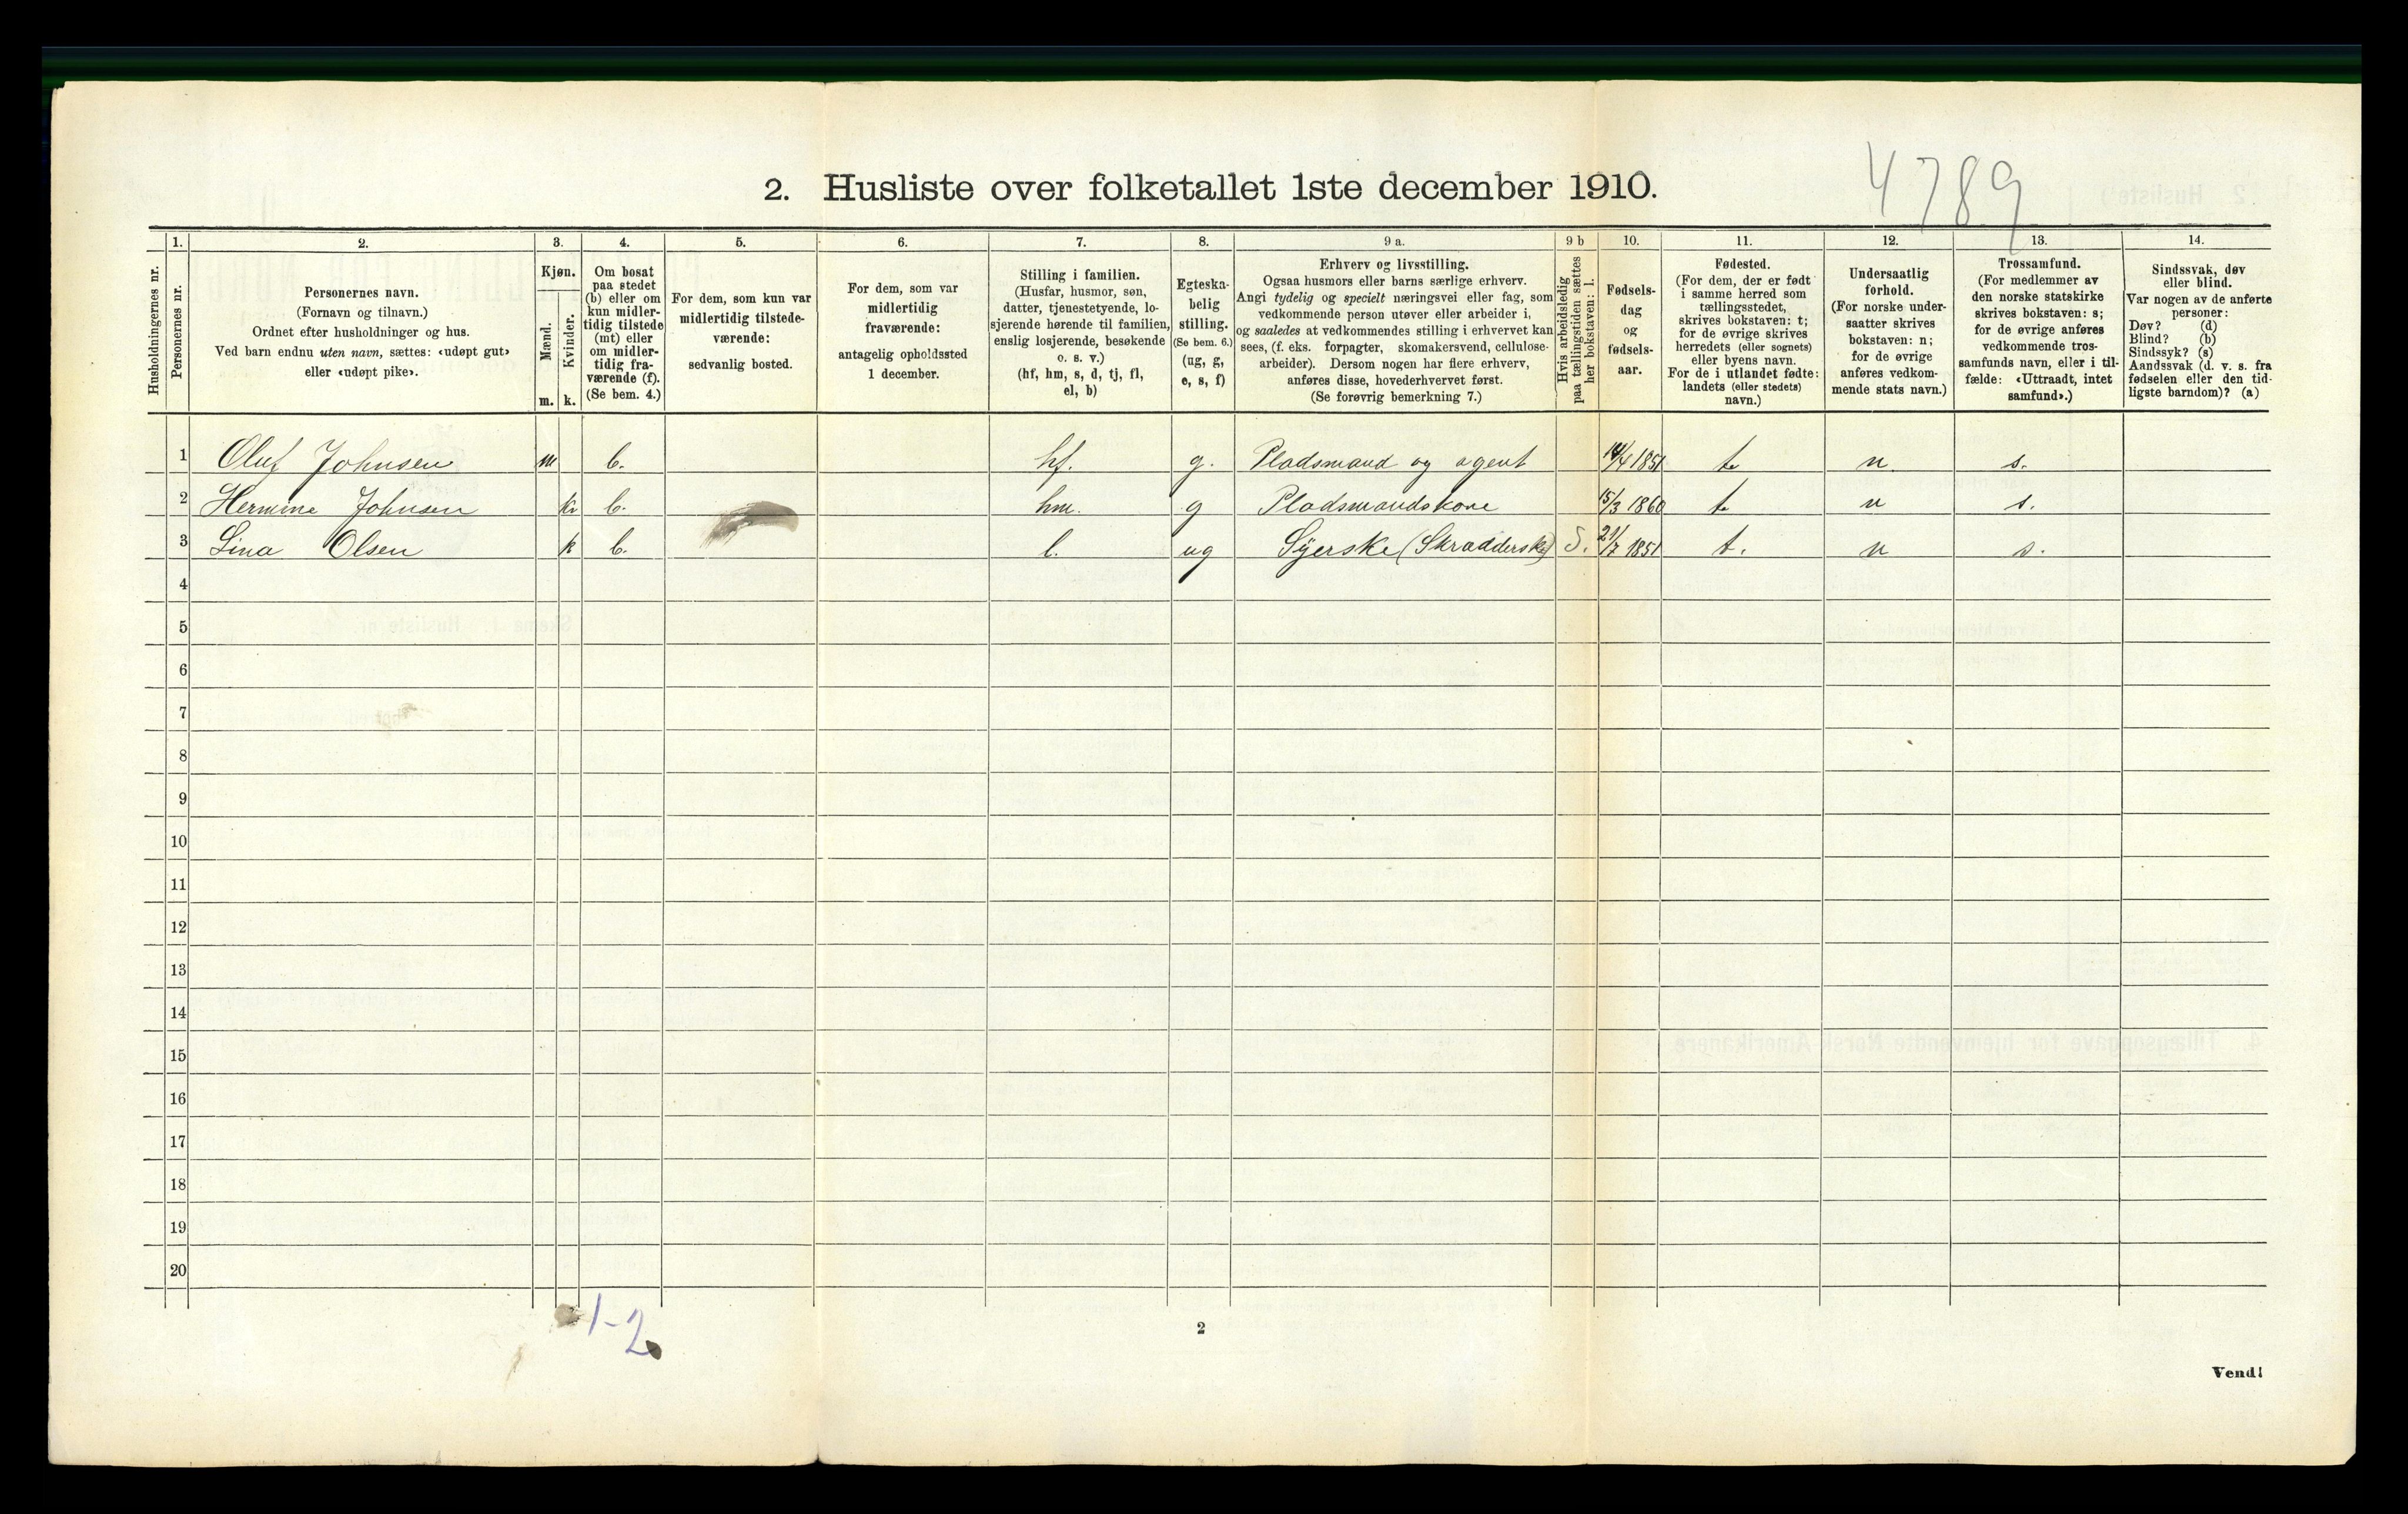 4789
2. Husliste over folketallet 1ste december 1910.
Husholdningernes nr.
1.
Personernes nr.
2.
Personernes navn.
(Fornavn og tilnavn.)
Ordnet efter husholdninger og hus.
Ved barn endnu uten navn, sættes: «udøpt gut»
eller «udøpt pike».
3.
Kjøn.
Mænd.
Kvinder.
m. k.
4.
Om bosat
paa stedet
(b) eller om
kun midler-
tidig tilstede
(mt) eller
om midler-
tidig fra-
værende (f).
(Se bem. 4.)
5.
For dem, som kun var
midlertidig tilstede-
værende:
sedvanlig bosted.
6.
For dem, som var
midlertidig
fraværende:
antagelig opholdssted
1 december.
7.
Stilling i familien.
(Husfar, husmor, søn,
datter, tjenestetyende, lo-
sjerende hørende til familien,
enslig losjerende, besøkende
o. s. v.)
(hf, hm, s, d, tj, fl,
el, b)
8.
Egteska-
belig
stilling.
(Se bem. 6.)
(ug, g,
e, s, f)
9 a.
Erhverv og livsstilling.
Ogsaa husmors eller barns særlige erhverv.
Angi tydelig og specielt næringsvei eller fag, som
vedkommende person utøver eller arbeider i,
og saaledes at vedkommendes stilling i erhvervet kan
sees, (f. eks. forpagter, skomakersvend, cellulose-
arbeider). Dersom nogen har flere erhverv,
anføres disse, hovederhvervet først.
(Se forøvrig bemerkning 7.)
9 b
Hvis arbeidsledig
paa tællingstiden sættes
her bokstaven: l.
10.
Fødsels-
dag
og
fødsels-
aar.
11.
Fødested.
(For dem, der er født
i samme herred som
tællingsstedet,
skrives bokstaven: t;
for de øvrige skrives
herredets (eller sognets)
eller byens navn.
For de i utlandet fødte:
landets (eller stedets)
navn.)
12.
Undersaatlig
forhold.
(For norske under-
saatter skrives
bokstaven: n;
for de øvrige
anføres vedkom-
mende stats navn.)
13.
Trossamfund.
(For medlemmer av
den norske statskirke
skrives bokstaven: s;
for de øvrige anføres
vedkommende tros-
samfunds navn, eller i til-
fælde: «Uttraadt, intet
samfund».)
14.
Sindssvak, døv
eller blind.
Var nogen av de anførte
personer:
Døv? (d)
Blind? (b)
Sindssyk? (s)
Aandssvak (d. v. s. fra
fødselen eller den tid-
ligste barndom)? (a)
1 Oluf Johnsen m b. hf. g. Pladsmand og agent 14/4 1851 t n. s.
2 Hermine Johnsen k b. hm. g Pladsmandskone 15/3 1860 t n s.
3 Lina Olsen k b. l. ug Syerske (Skradderske) 21/7 1851 t. n s.
4
5
6
7
8
9
10
11
12
13
14
15
16
17
18
19
20
1-2
2
Vend!